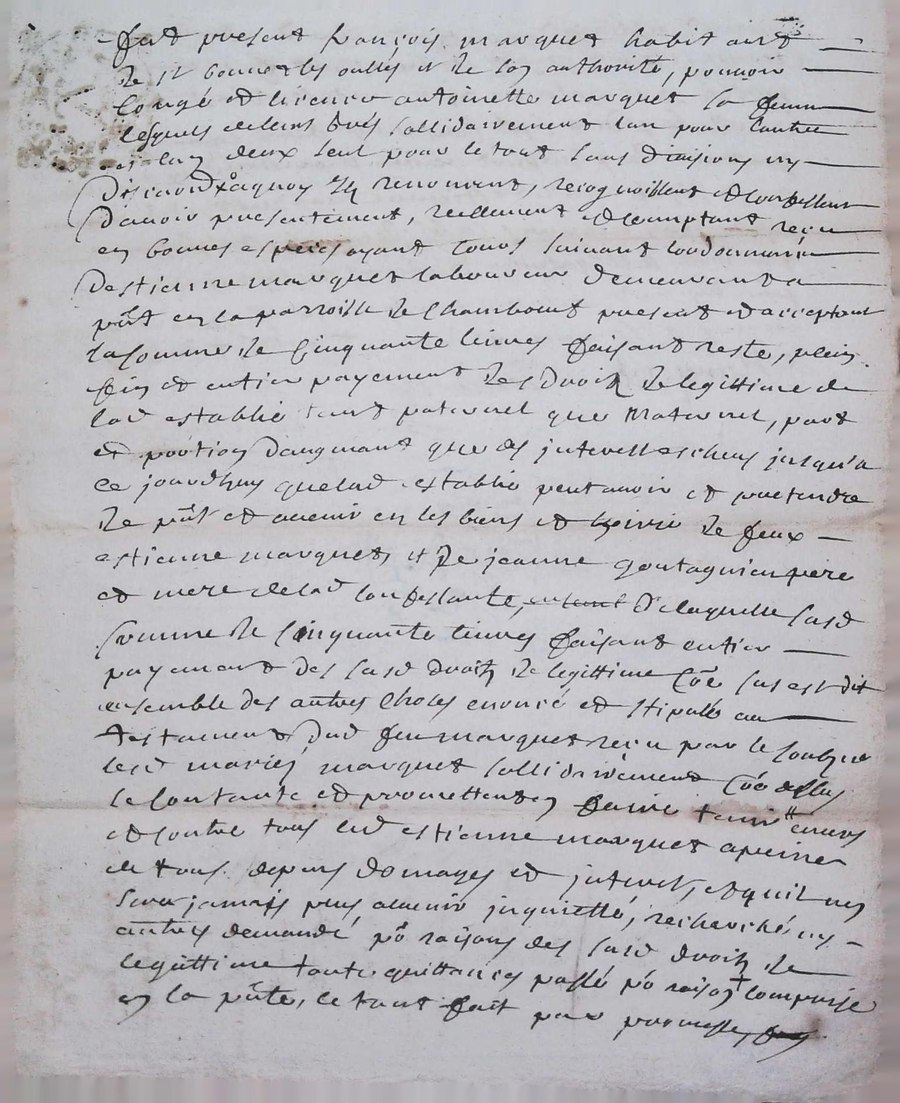 fut present françois marquet habitant
de st bonnet les oulles et de son authorité, pouvoir
congé et licence antoinette marquet sa femme
lesquels de leurs grés sollidairement lun pour lautre
et lun deux seul pour le tout sans division ny
discution a quoy ilz renoncent, recognoissent et confessent
davoir presentement, reellement et comptant reçu
en bonnes espèces ayant cours suivant lordonnance
destienne marquet laboureur demeurant a
pñt en la parroisse de Chambœuf present et acceptant
la somme de Cinquante livres faisant reste, plein
fin et entier payement des droitz de legittime de
lad establie tant paternel que Maternel, part
et portion daugmant que des interests escheus jusqu'a
ce jourdhuy que lad establie peut avoir et pretendre
de pñt et avenir en les biens et hoirie de feux
estienne marquet, et de jeanne goutagnieu pere
et mere de lad confessante, de laquelle susd
somme de Cinquante livres faisant entier
payement des susd droitz de legittime Coẽ sus est dit
ensemble des autres Choses enoncé et stipullé au
testament dud feu marquet reçu par le soubsigné
lesd mariés marquet sollidairement Coẽ dessus
se contante et promettent en faire tenir envers
et contre tous led estienne marquet a peine
de tous depens domages et interest, et quil ne
sera jamais plus a lavenir inquietté, recherché, ny
autres demandé põ raisons des susd droitz de
legittime toute quittances passé põ raison comprise
en la pñte, le tout fait par promesse,